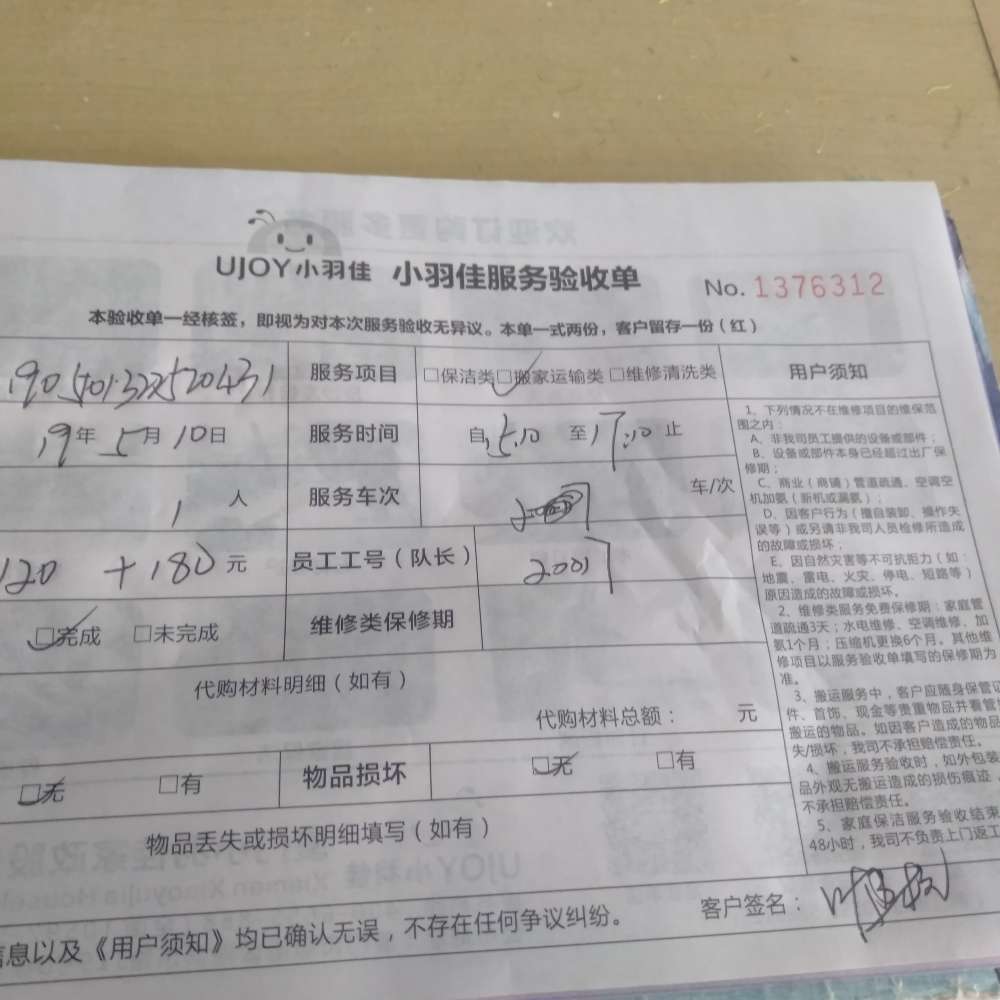 UJOY小羽佳 小羽佳服务验收单 No. 1376312
本验收单一经核签，即视为对本次服务验收无异议。本单一式两份，客户留存一份（红）
服务项目 □保洁类 □搬家运输类 □维修清洗类
19年5月10日 服务时间 自15:10 至17:10止
1人 服务车次 车/次
120 +180元 员工工号（队长） 20017
□完成 □未完成 维修类保修期
代购材料明细（如有）
代购材料总额： 元
□无 □有 物品损坏 □无 □有
物品丢失或损坏明细填写（如有）
信息以及《用户须知》均已确认无误，不存在任何争议纠纷。
客户签名：
用户须知
1、下列情况不在维修项目的维保范
围之内：
A、非我司员工提供的设备或部件；
B、设备或部件本身已经超过出厂保
修期；
C、商业（商铺）管道疏通、空调空
机加氨（新机或漏氨）；
D、因客户行为（擅自装卸、操作失
误等）或另请非我司人员检修所造成
的故障或损坏；
E、因自然灾害等不可抗拒力（如：
地震、雷电、火灾、停电、短路等）
原因造成的故障或损坏。
2、维修类服务免费保修期：家庭管
道疏通3天；水电维修、空调维修、加
氨1个月；压缩机更换6个月。其他维
修项目以服务验收单填写的保修期为
准。
3、搬运服务中，客户应随身保管证
件、首饰、现金等贵重物品并看管
搬运的物品。如因客户造成的物品
失/损坏，我司不承担赔偿责任。
4、搬运服务验收时，如外包装
品外观无搬运造成的损伤痕迹，
不承担赔偿责任。
5、家庭保洁服务验收结束
48小时，我司不负责上门返工